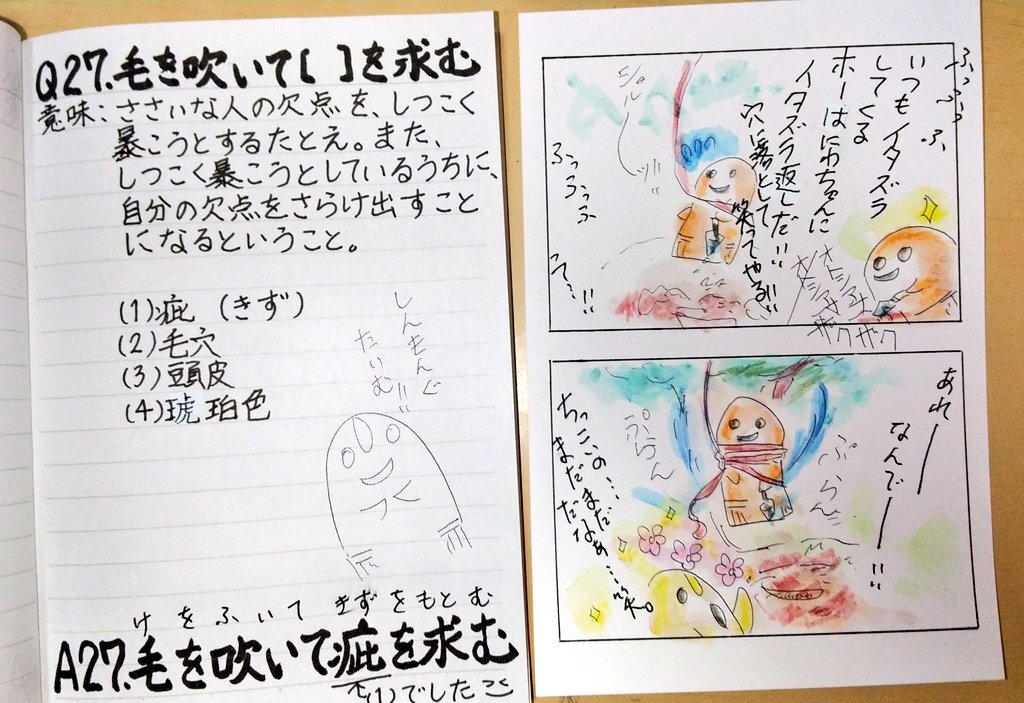 Q27.毛を吹いて[ ]を求む
意味：ささいな人の欠点を、しつこく
暴こうとするたとえ。また、
しつこく暴こうとしているうちに、
自分の欠点をさらけ出すこと
になるということ。
(1)疵 (きず)
(2)毛穴
(3)頭皮
(4)琥珀色
しんもんぐ
たいむ!!
けをふいてきずをもとむ
A27.毛を吹いて疵を求む
(1)でした
ふっふっふっふ
いつもイタズラ
してくる
ホーはにわちゃんに
イタズラ返しだ!!
穴に落として
笑ってやる!!
ふっふっふ
そ…!!
ザクザク
あれーー
なんでーー!!
ぷらん
ぷらん
ちっこいの…
まだまだ
だなぁ…